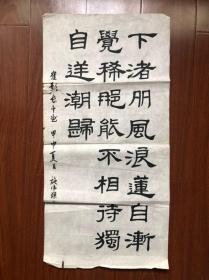 下渚多風浪蓮舟漸
覺稀那能不相待獨
自逆潮歸
崔顥長干曲 甲申夏